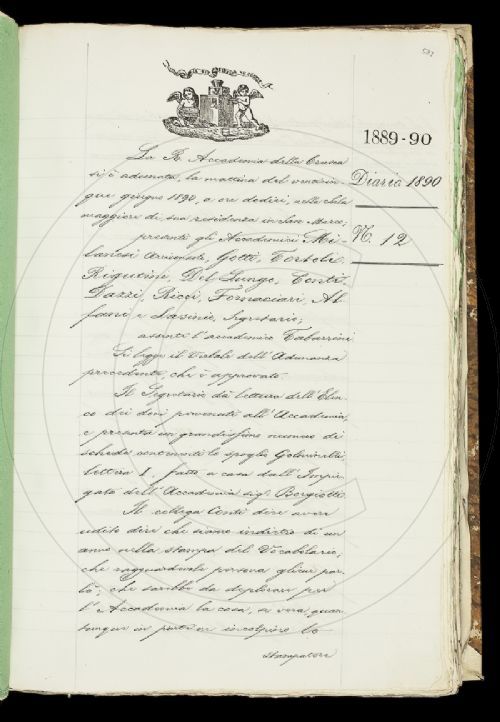 532
1889-90
Diario 1890
N. 12
La R. Accademia della Crusca
si è adunata la mattina del venticin-
que giugno 1890, a ore dodici, nella sala
maggiore di sua residenza in San Marco;
presenti gli Accademici Mi-
lanesi Arciconsolo, Gotti, Tortoli,
Rigutini, Del Lungo, Conti,
Dazzi, Ricci, Fornaciari, Al-
fani e Masino, Segretario;
assente l'accademico Tabarrini
Si legge il Verbale dell'Adunanza
precedente, che è approvato.
Il Segretario dà lettura dell'Elen-
co dei doni pervenuti all'Accademia,
e presenta un grandissimo numero di
schede contenenti lo spoglio
lettera I. fatto a casa dall'Impie-
gato dell'Accademia sig. Bergiotti
Il collega Conti dice avere
udito dire che siamo indietro di un
anno nella stampa del Vocabolario,
che ragguardevole persona gliene par-
lò; che sarebbe da deplorare per
l'Accademia la cosa, e vera quan-
tunque in parte ne incolpino lo
stampatore